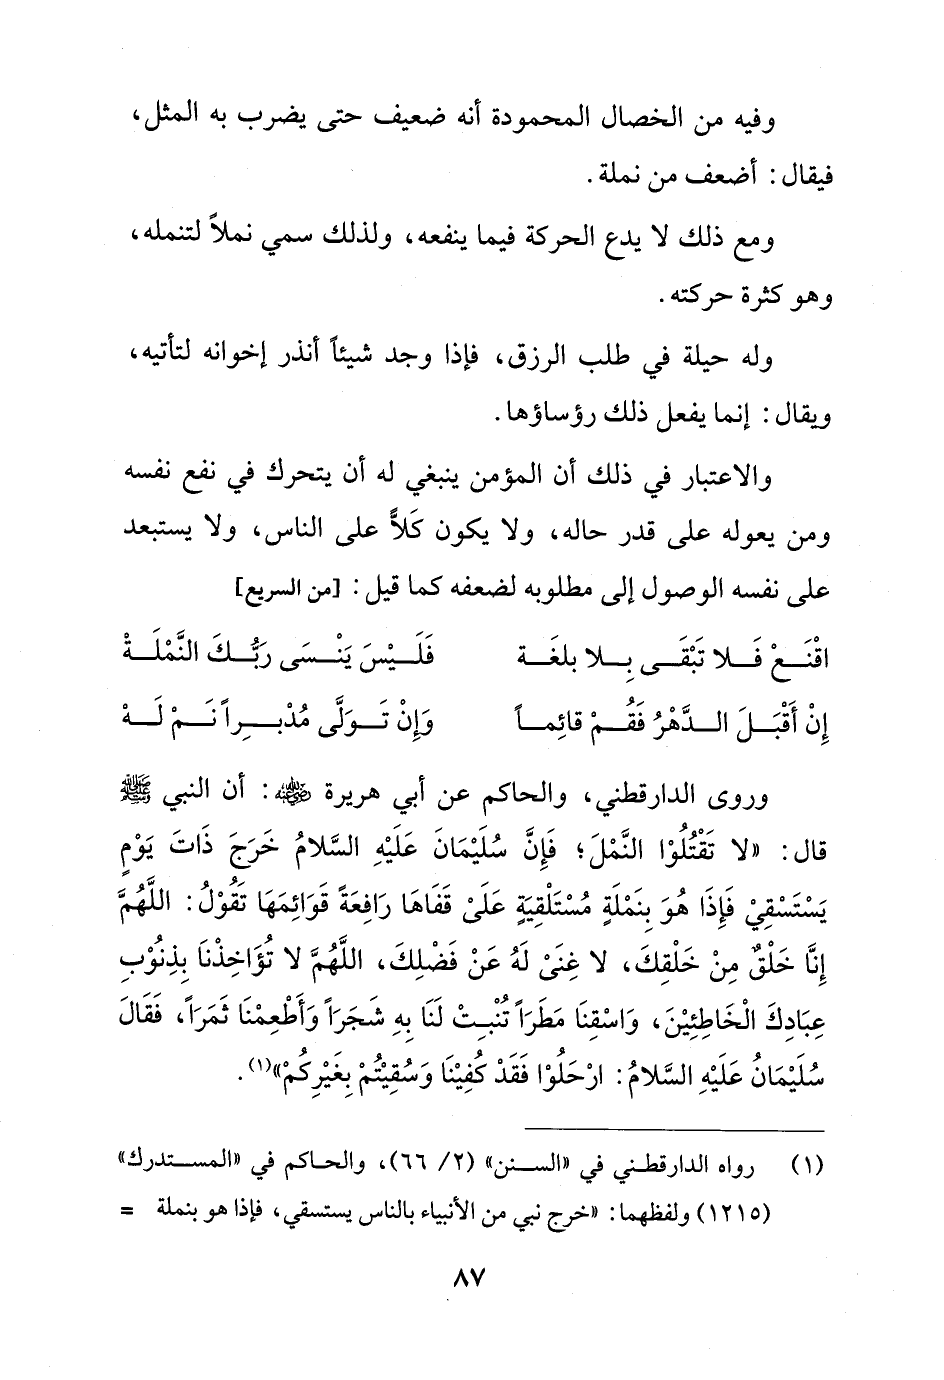 وفيه من الخصال المحمودة أنه ضعيف حتى يضرب به المثل،
فيقال: أضعف من نملة.
ومع ذلك لا يدع الحركة فيما ينفعه، ولذلك سمي نملاً لتنمله،
وهو كثرة حركته.
وله حيلة في طلب الرزق، فإذا وجد شيئاً أنذر إخوانه لتأتيه،
ويقال: إنما يفعل ذلك رؤساؤها.
والاعتبار في ذلك أن المؤمن ينبغي له أن يتحرك في نفع نفسه
ومن يعوله على قدر حاله، ولا يكون كَلاًّ على الناس، ولا يستبعد
على نفسه الوصول إلى مطلوبه لضعفه كما قيل: [من السريع]
اقْنَعْ فَلا تَبْقَى بِلا بلغَة فَلَيْسَ يَنْسَى رَبُّكَ النَّمْلَةْ
إِنْ أَقْبَلَ الدَّهْرُ فَقُمْ قائِماً وَإِنْ تَوَلَّى مُدْبِراً نَمْ لَهْ
وروى الدارقطني، والحاكم عن أبي هريرة رضي الله عنه: أن النبي ﷺ
قال: «لا تَقْتُلُوْا النَّمْلَ؛ فَإِنَّ سُلَيْمَانَ عَلَيْهِ السَّلامُ خَرَجَ ذَاتَ يَوْمٍ
يَسْتَسْقِيْ فَإِذَا هُوَ بِنَمْلَةٍ مُسْتَلْقِيَةٍ عَلَىْ قَفَاهَا رَافِعَةً قَوَائِمَهَا تَقُوْلُ: اللَّهُمَّ
إِنَّا خَلْقٌ مِنْ خَلْقِكَ، لا غِنَىْ لَهُ عَنْ فَضْلِكَ، اللَّهُمَّ لا تُؤَاخِذْنَا بِذِنُوْبِ
عِبَادِكَ الْخَاطِئِيْنَ، وَاسْقِنَا مَطَرَاً تُنْبِتْ لَنَا بِهِ شَجَرَاً وَأَطْعِمْنَا ثَمَرَاً، فَقَالَ
سُلَيْمَانُ عَلَيْهِ السَّلامُ: ارْحَلُوْا فَقَدْ كُفِيْنَا وَسُقِيْتُمْ بِغَيْرِكُمْ»(١).
(١) رواه الدارقطني في «السنن» (٢/ ٦٦)، والحاكم في «المستدرك»
(١٢١٥) ولفظهما: «خرج نبي من الأنبياء بالناس يستسقي، فإذا هو بنملة =
٨٧